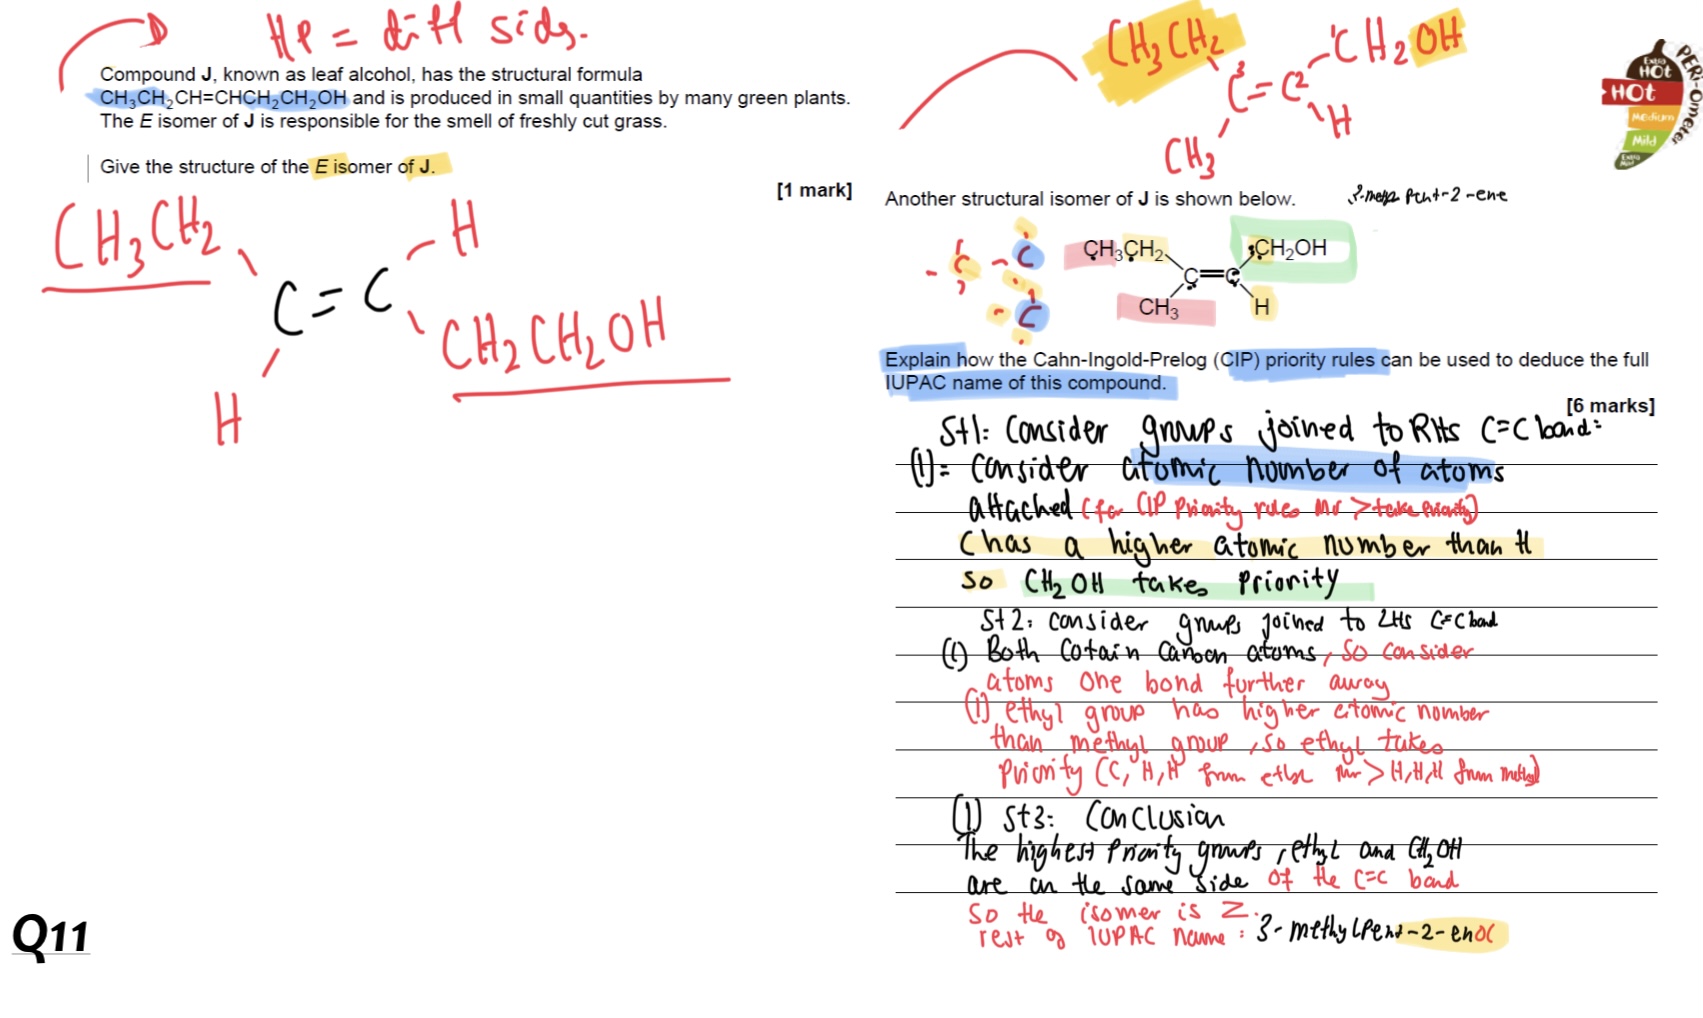 HP = diff side.
Compound J, known as leaf alcohol, has the structural formula
CH3CH2CH=CHCH2CH2OH and is produced in small quantities by many green plants.
The E isomer of J is responsible for the smell of freshly cut grass.
Give the structure of the E isomer of J.
[1 mark]
CH3CH2
H
C=C
CH2CH2OH
H
Q11
CH3CH2
CH2OH
C3=C2
H
CH3
Extra
HOt
HOt
Medium
Mild
Extra
Mild
PERi-Ometer
Another structural isomer of J is shown below.
Pent-2-ene
C
C
C
CH3CH2
CH2OH
C=C
CH3
H
Explain how the Cahn-Ingold-Prelog (CIP) priority rules can be used to deduce the full
IUPAC name of this compound.
[6 marks]
St1: Consider groups joined to RHS C=C bond:
(1)= Consider atomic number of atoms
attached (for CIP Priority rules Mr > take Priority)
C has a higher atomic number than H
so CH2OH takes Priority
St2: consider groups joined to LHS C=C bond
(1) Both Cotain Carbon atoms, so consider
atoms one bond further away
(1) ethyl group has higher atomic number
than methyl group, so ethyl takes
Priority (C, H, H from Mr > H,H,H from methyl)
(1) St3: Conclusion
The highest Priority groups, ethyl and CH2OH
are on the same side of the C=C bond
So the isomer is Z.
rest of IUPAC name: 3-methylpent-2-enol